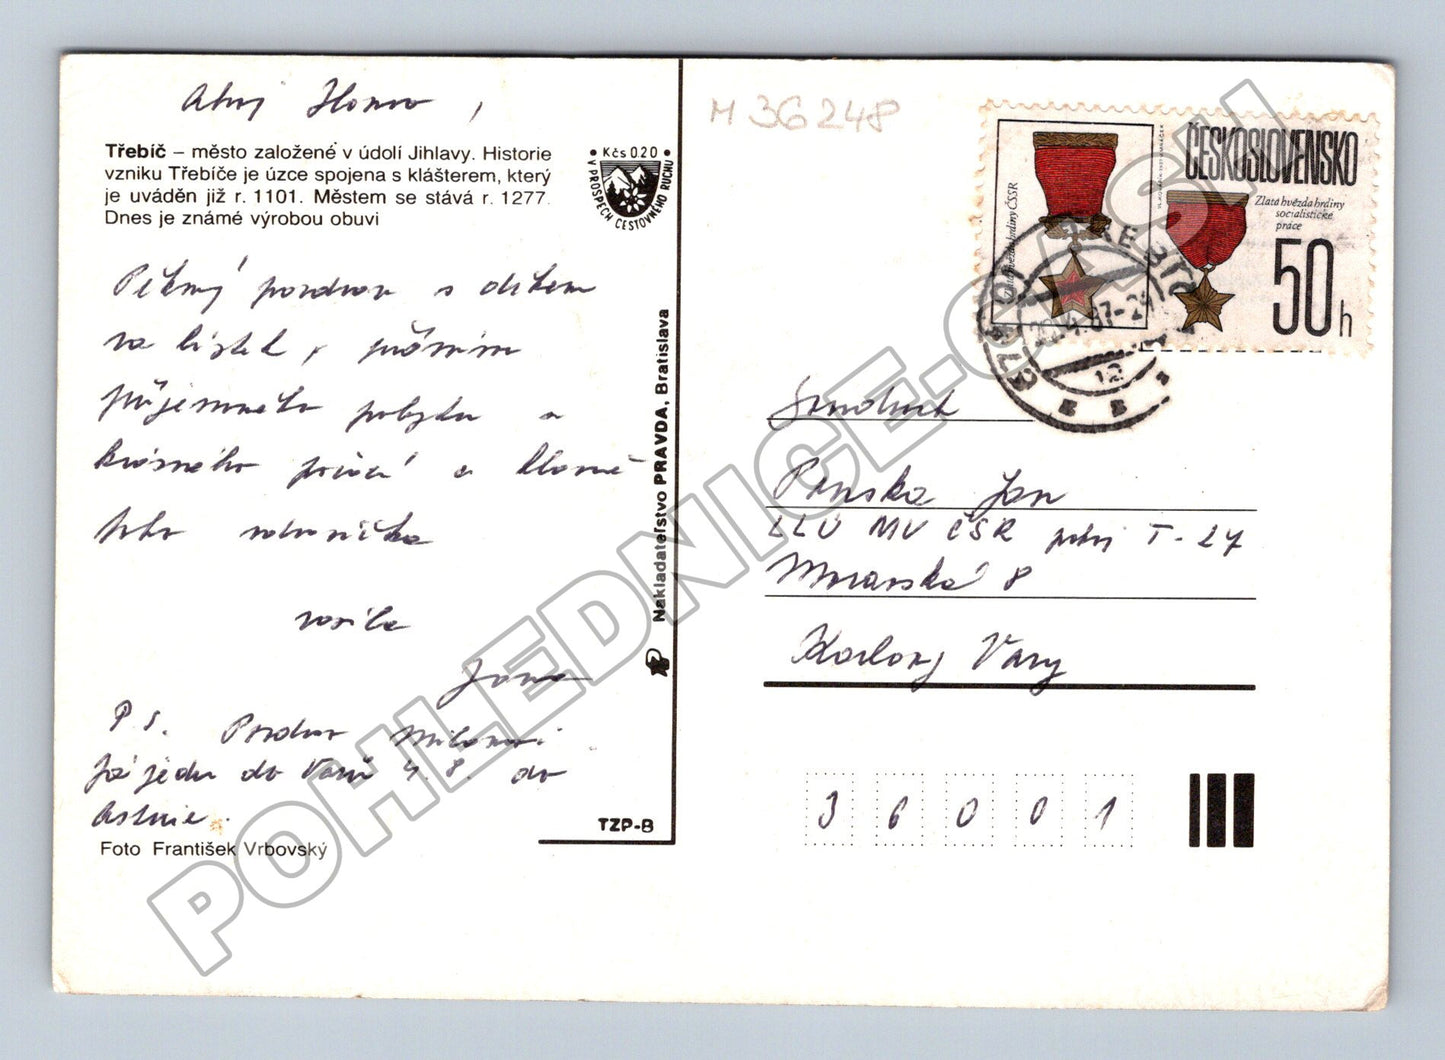 Ahoj Honzo,
Třebíč – město založené v údolí Jihlavy. Historie
vzniku Třebíče je úzce spojena s klášterem, který
je uváděn již r. 1101. Městem se stává r. 1277.
Dnes je známé výrobou obuvi
Kčs 020
V PROSPĚCH CESTOVNÍHO RUCHU
Pěkný pozdrav s díkem
za lístek,
příjemného pobytu a
krásného počasí a hlavně
toho
posílá
Jana
P.S. Pozdrav Milanovi
já jedu do Varů 4. 8. do
Astorie.
Foto František Vrbovský
Nakladateľstvo PRAVDA, Bratislava
TZP-B
M 36 248
ČESKOSLOVENSKO
Zlatá hvězda hrdiny ČSSR
Zlatá hvězda hrdiny
socialistické
práce
50 h
12
Soudruh
Jan
LLÚ MV ČSR pokoj T-27
Moravská 8
Karlovy Vary
36001
POHLEDNICE.CASH